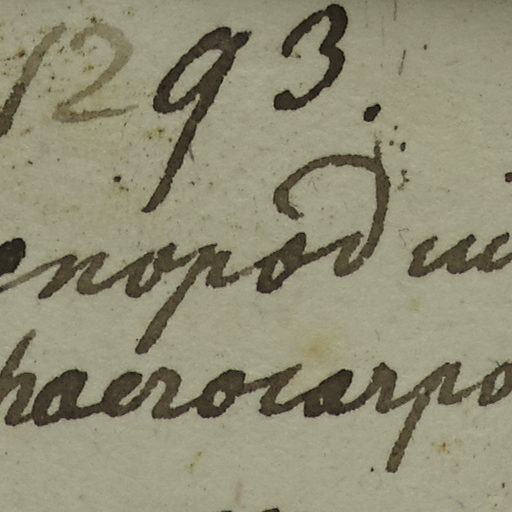 1293.
enopodiu
haerocarpo